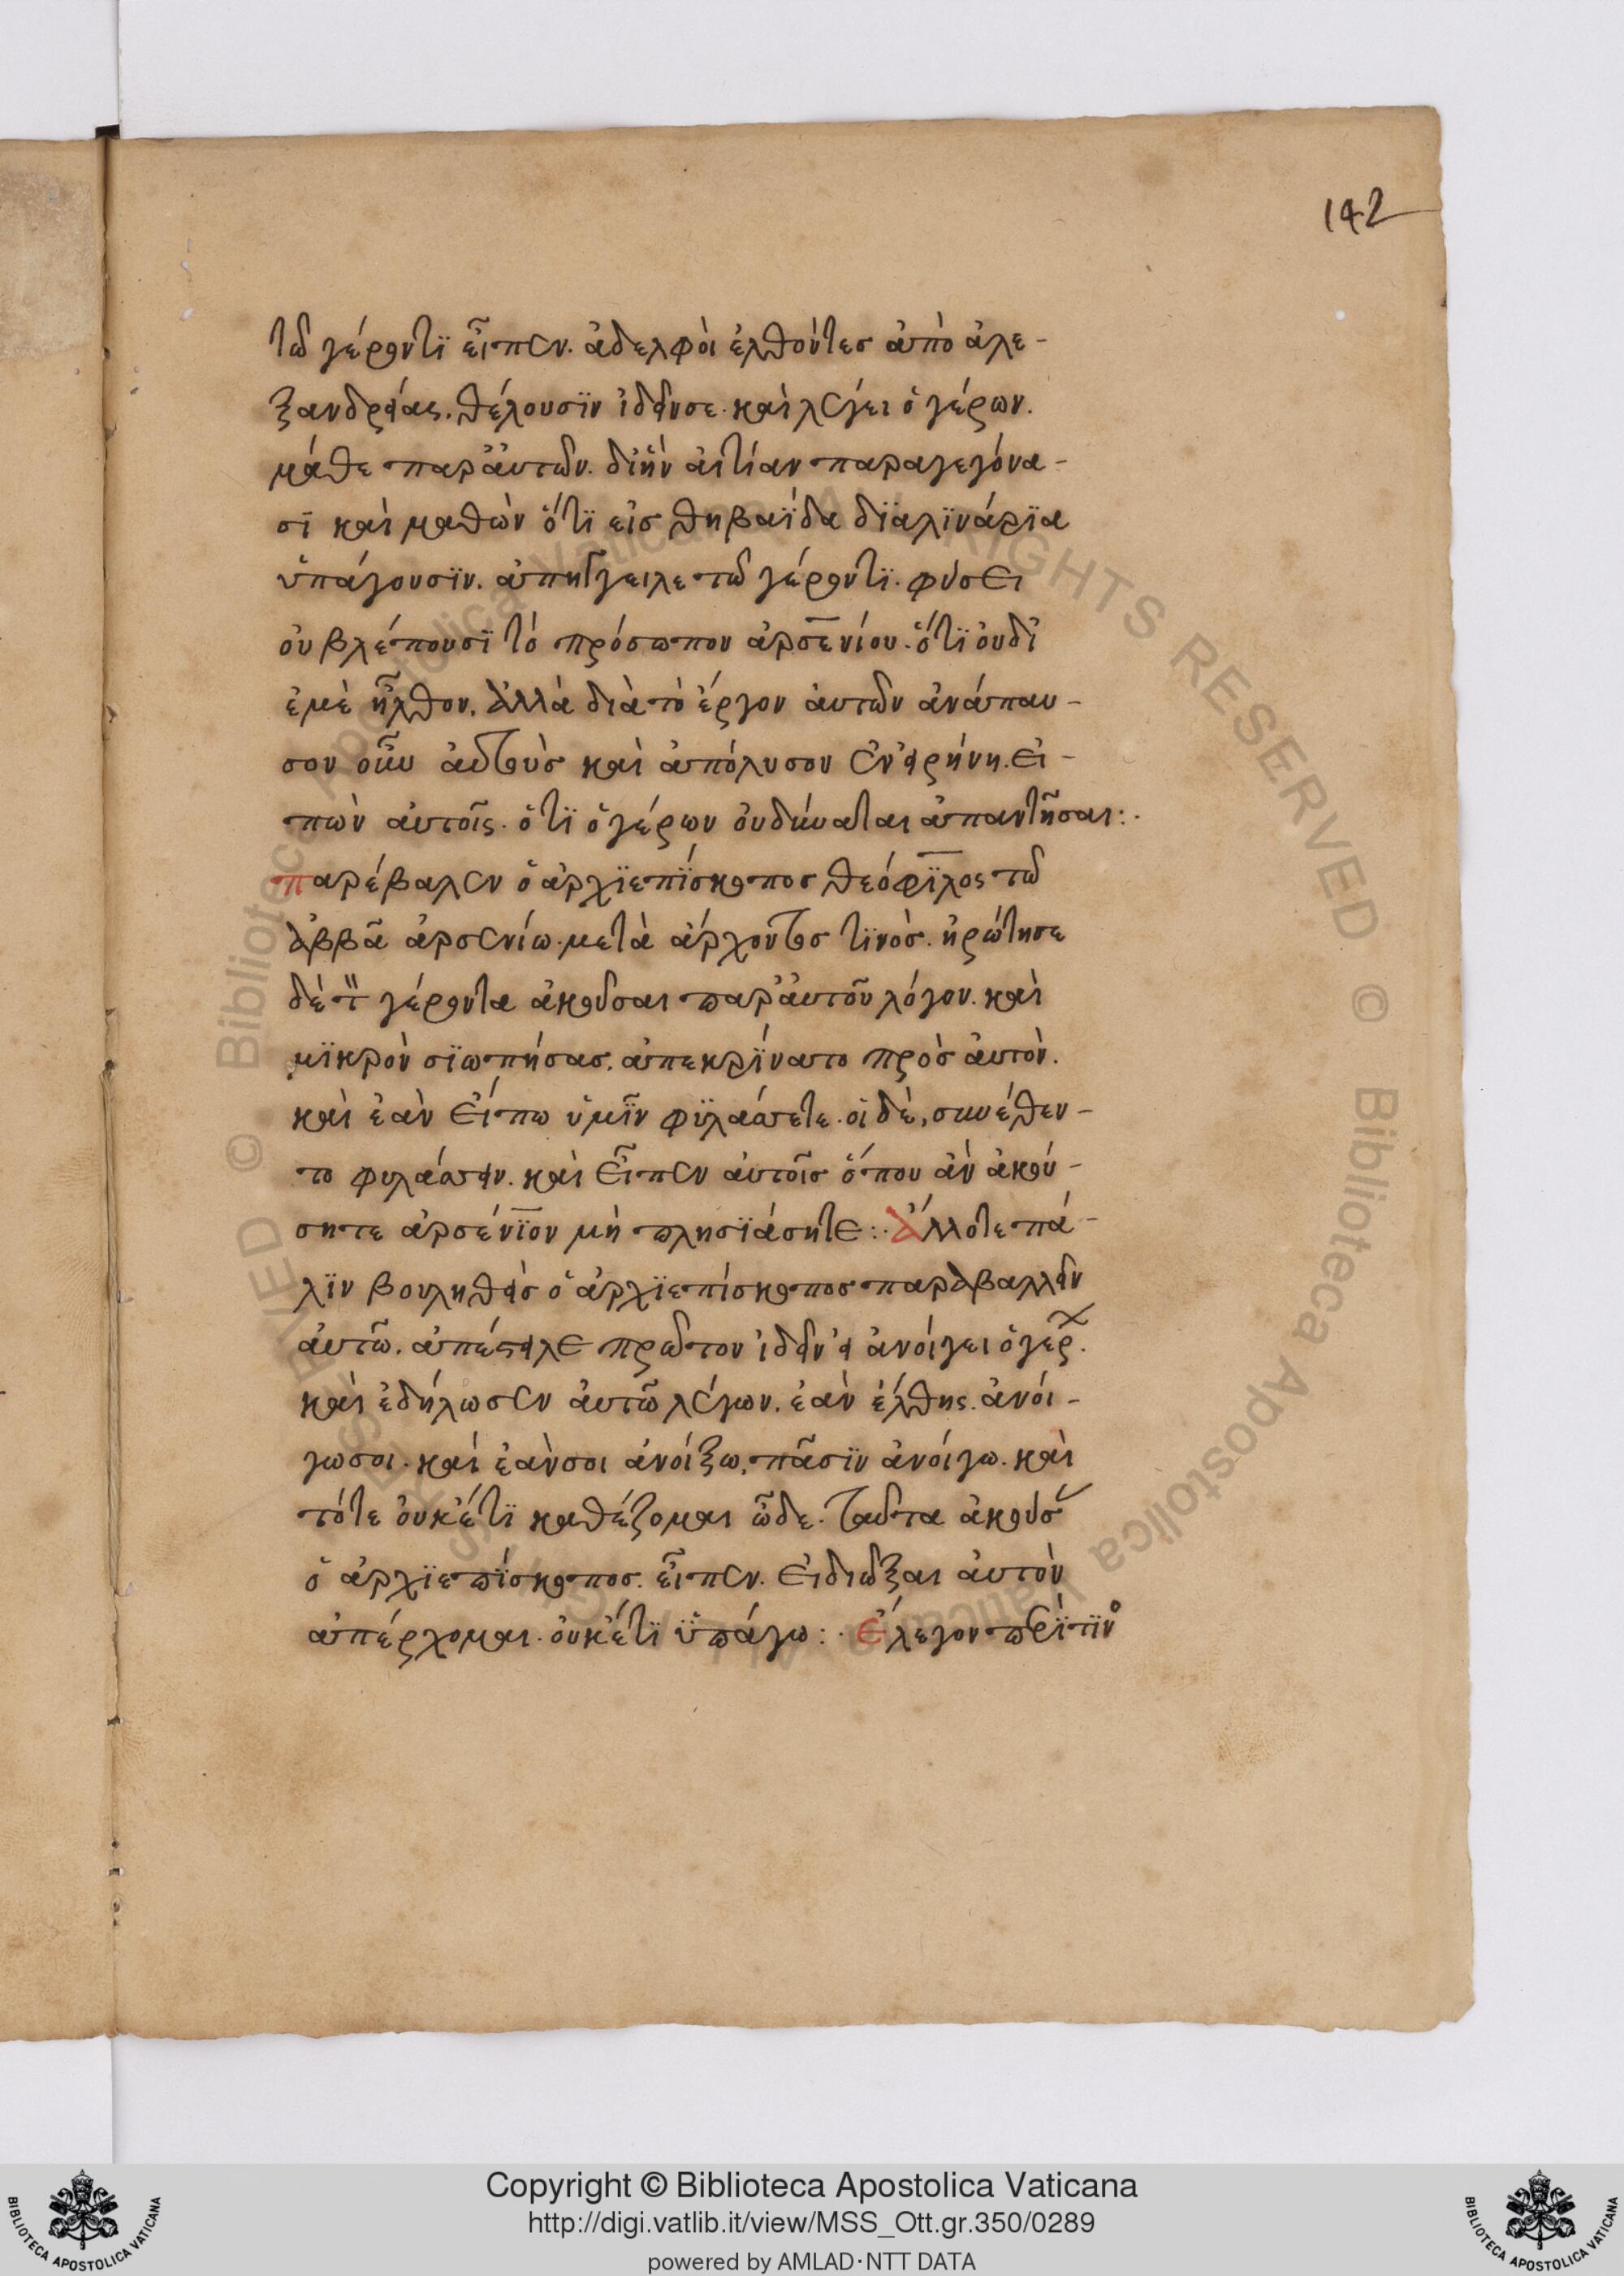 142
τῶ γέροντϊ εἶπεν. ἀδελφοὶ ἐλθόντες ἀπὸ ἀλε-
ξανδρείας. θέλουσϊν ἰδεῖνσε. καὶ λέγει ὁ γέρων.
μάθε παρ' ἀυτῶν. δι' ἣν ἀιτίαν παραγεγόνα-
σϊ καὶ μαθὼν ὅτϊ εἰς θηβαΐδα δϊαλϊνάρϊα
ὑπάγουσϊν. ἀπήγγειλε τῶ γέροντϊ. φύσει
οὐ βλέπουσϊ τὸ πρόσωπον ἀρσενίου. ὅτϊ ὀυδι
ἐμὲ ἦλθον. ἀλλὰ διὰ τὸ ἔργον ἀυτῶν ἀνάπαυ-
σον οὖν ἀυτοὺς καὶ ἀπόλυσον ἐν εἰρήνη. εἰ-
πὼν ἀυτοῖς. ὅτϊ ὁ γέρων ὀυδύναται ἀπαντῆσαι:.
παρέβαλεν ὁ ἀρχϊεπΐσκοπος θεόφϊλος τῶ
ἀββᾶ ἀρσενίω. μετὰ ἄρχοντος τϊνὸς. ἠρώτησε
δὲ τὸν γέροντα ἀκοῦσαι παρ' ἀυτοῦ λόγον. καὶ
μϊκρὸν σϊωπήσας. ἀπεκρΐνατο πρὸς ἀυτὸν.
καὶ ἐὰν εἴπω ὑμῖν φϋλάσσετε. οἱ δὲ, συνέθεν-
το φυλάσσειν. καὶ εἶπεν ἀυτοῖς ὅπου ἂν ἀκού-
σητε ἀρσένϊον μὴ πλησϊάσητε:. Ἄλλοτε πά-
λϊν βουληθεὶς ὁ ἀρχϊεπίσκοπος παραβαλλεῖν
ἀυτῶ. ἀπέστειλε πρῶτον ἰδεῖν εἰ ἀνοίγει ὁ γέρ.
καὶ ἐδήλωσεν ἀυτῶ λέγων. ἐὰν ἔλθης. ἀνοί-
γωσοι. καὶ ἐὰνσοι ἀνοίξω, πᾶσϊν ἀνοίγω. καὶ
τότε ὀυκέτϊ καθέζομαι ὧδε. ταῦτα ἀκούσ
ὁ ἀρχϊεπΐσκοπος. εἶπεν. εἰ διῶξαι ἀυτὸν
ἀπέρχομαι. ὀυκέτϊ ὑπάγω:. ἔλεγον περΐ τϊν
Copyright © Biblioteca Apostolica Vaticana
http://digi.vatlib.it/view/MSS_Ott.gr.350/0289
powered by AMLAD·NTT DATA
BIBLIOTECA APOSTOLICA VATICANA
BIBLIOTECA APOSTOLICA VATICANA